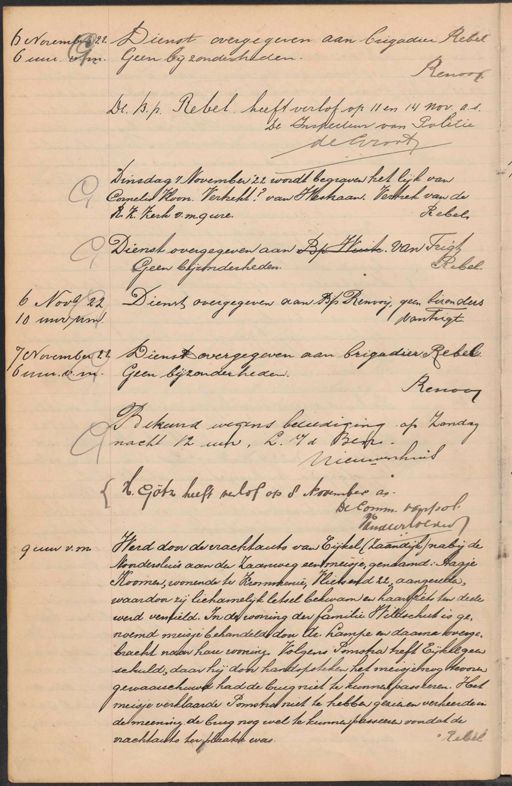 6 November 22 Dienst overgegeven aan brigadier Rebel
6 uur v.m. Geen bijzonderheden.
Renooy
De B.p. Rebel heeft verlof op 11 en 14 Nov. a.s.
De Inspecteur van Politie
de Groot
Dinsdag 7 November 22 wordt begraven het lijk van
Cornelis Hoon. Verkerk? van Heskaan. Vertrek van de
R.K. Kerk v.m. 9 ure. Rebel
Dienst overgegeven aan Bp van Trigt
Geen bijzonderheden. Rebel.
6 Novr 22 Dienst overgegeven aan Bp Renooy, geen bizonders
10 uur n.m. van Trigt
7 November 22 Dienst overgegeven aan brigadier Rebel
6 uur v.m. Geen bijzonderheden.
Renooy
Bekeurd wegens beleediging op Zondag
nacht 12 uur, L. v/d Berg.
Nieuwenhuis
H. Götz heeft verlof op 8 November as.
De Comm. van pol.
9 uur v.m. Werd door de vrachtauto van Eijkel (Zaandijk) nabij de
Noordersluis aan de Zaanweg een meisje, genaamd: Aagje
Koomen, wonende te Krommenie, Vlietsend 22, aangereden,
waardoor zij lichamelijk letsel bekwam en haar fiets ten deele
werd vernield. In de woning der familie Wildschut is ge-
noemd meisje behandeld door Dr. Lampe en daarna overge-
bracht naar haar woning. Volgens Pomstra heeft Eijkel geen
schuld, daar hij door handopsteken het meisje nog tevoren
gewaarschuwd had de brug niet te kunnen passeren. Het
meisje verklaarde Pomstra niet te hebben gezien en verkeerde in
de meening de brug nog wel te kunnen passeren voordat de
vrachtauto ter plaatse was. Rebel